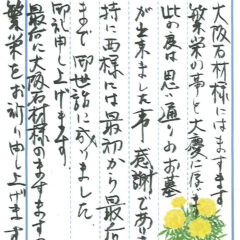 大阪石材様にはますます
繁栄の事と大慶に存じま
此の度は思い通りのお墓
が出来ました事感謝であり
特に西様には最初から最后
まで御世話に成りました
御礼申し上げます
最后に大阪石材様のますますの
繁栄をお祈り申し上げます